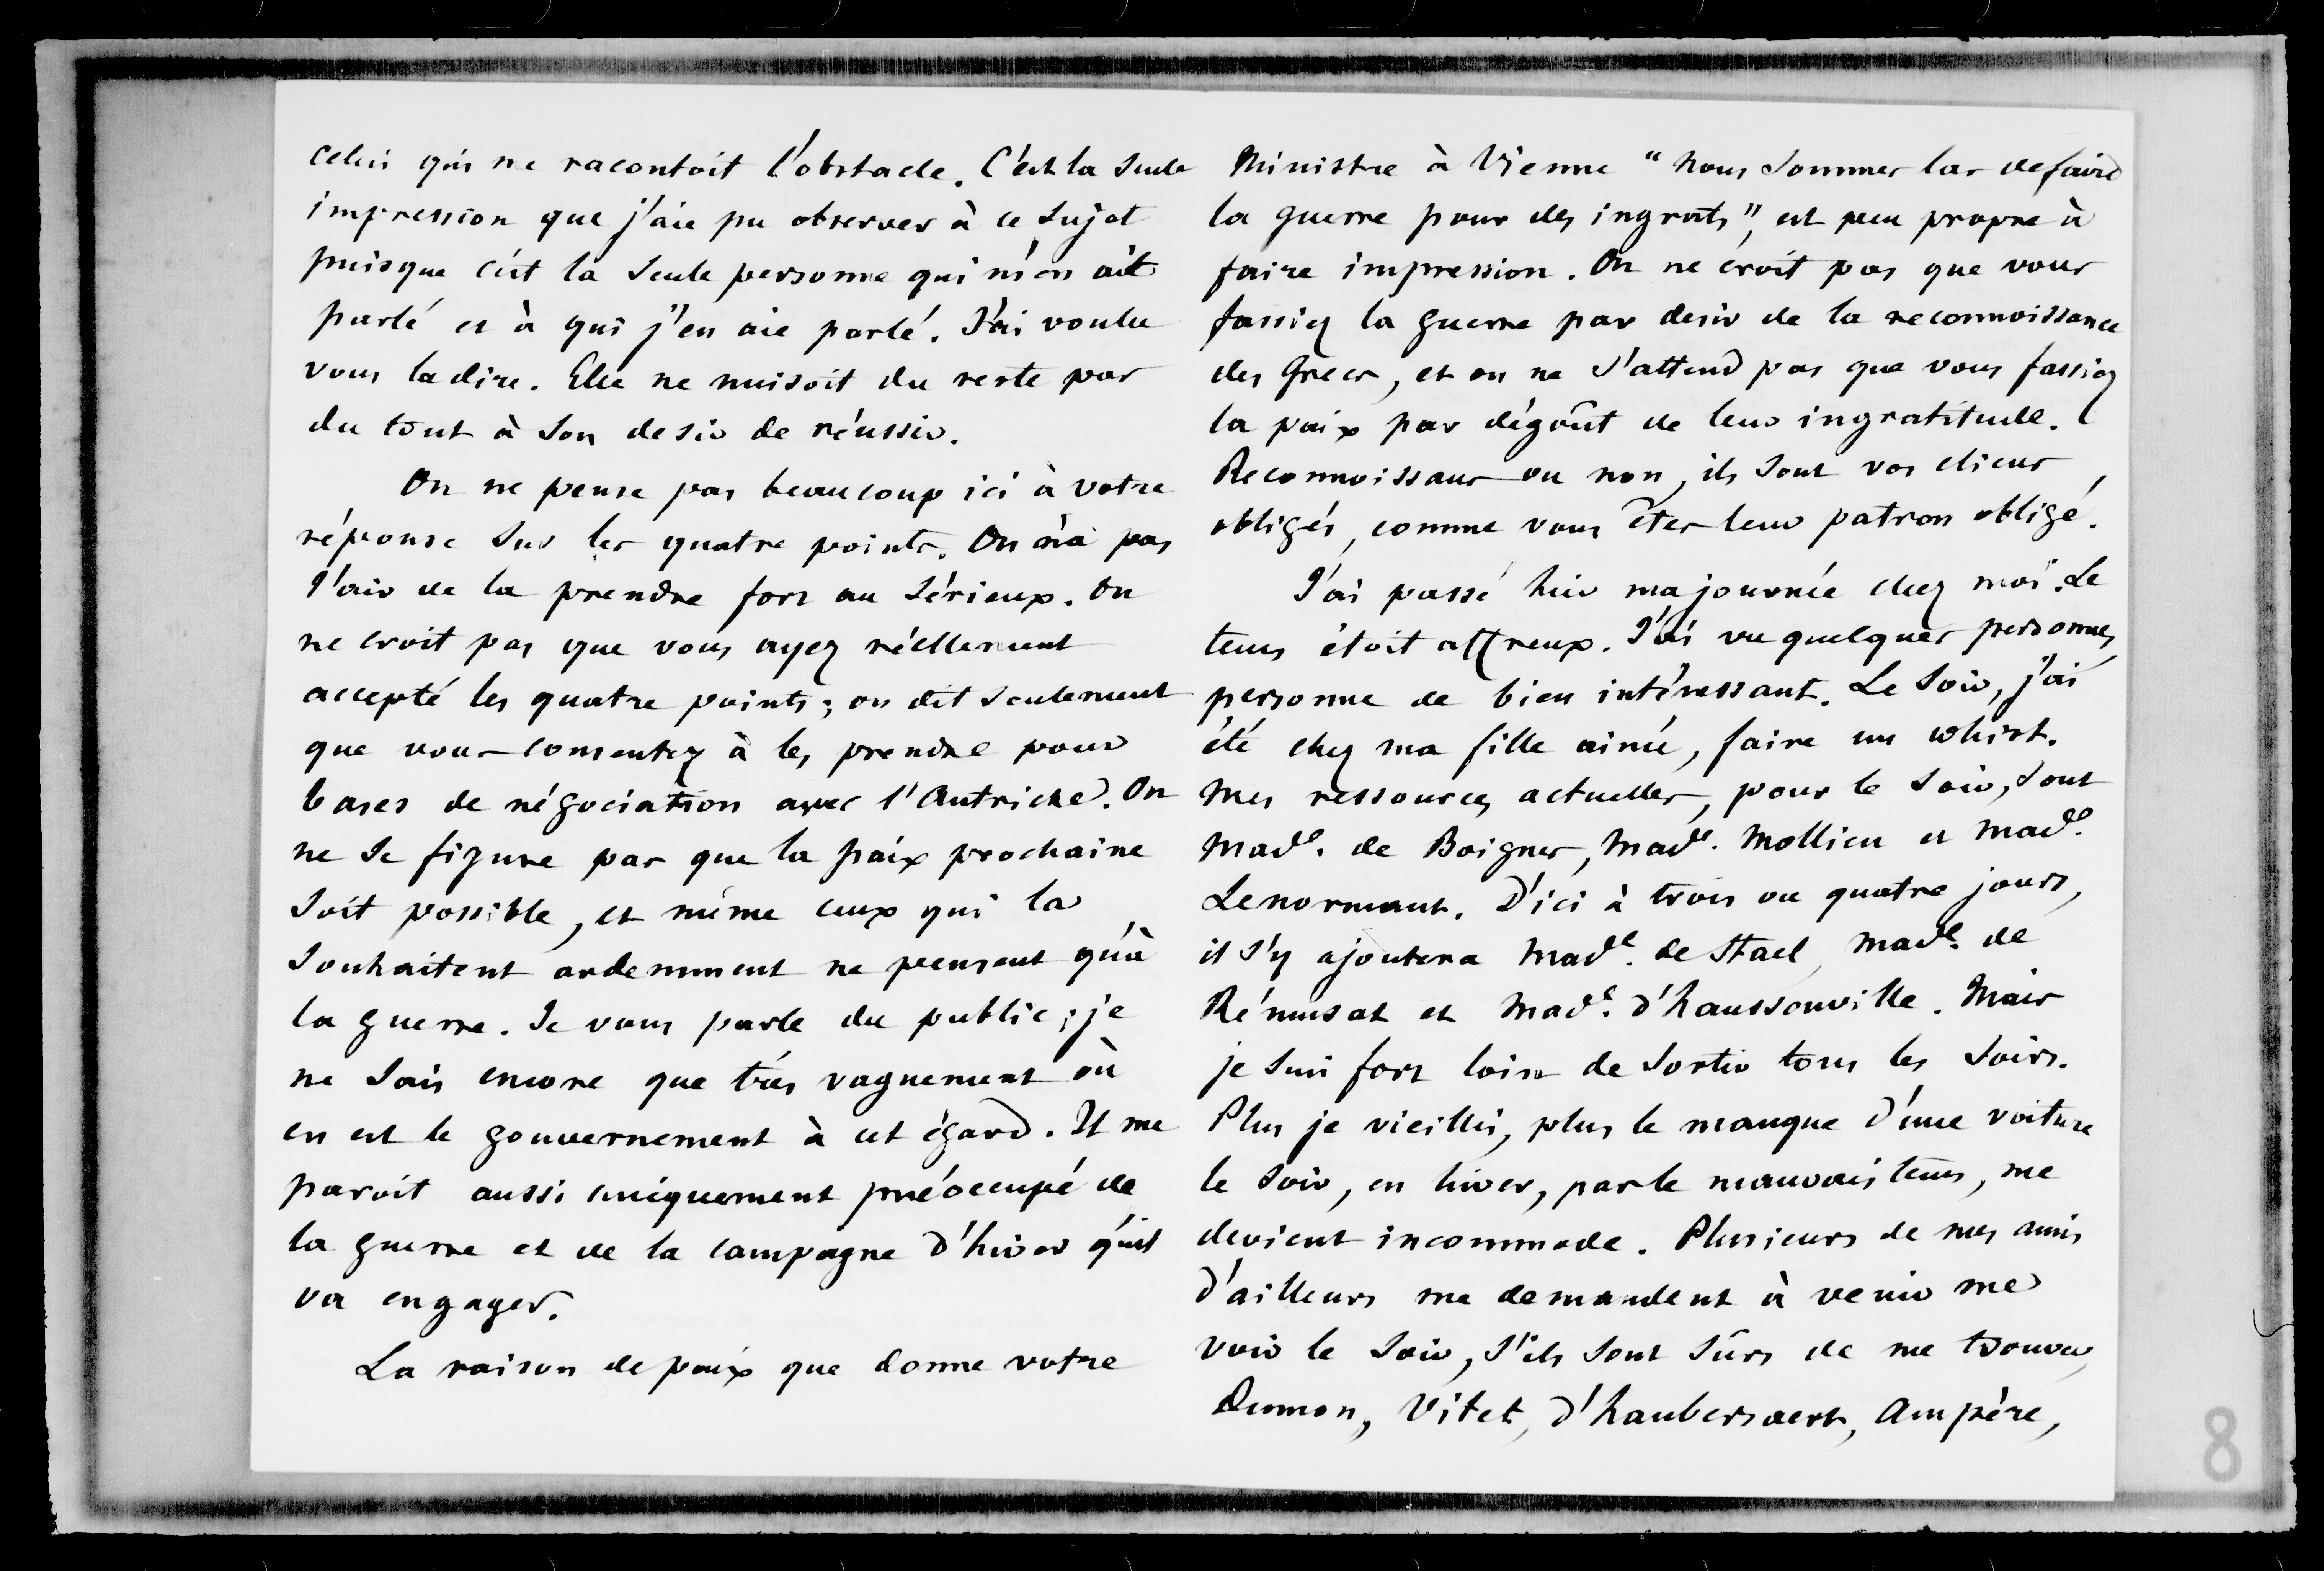 celui qui me racontoit l'obstacle. C'est la seule
impression que j'aie pu observer à ce sujet
puisque c'est la seule personne qui m'en ait
parlé et à qui j'en aie parlé. J'ai voulu
vous la dire. Elle ne nuisoit du reste pas
du tout à son desir de réussir.
On ne pense pas beaucoup ici à votre
réponse sur les quatre points. On n'a pas
l'air de la prendre fort au sérieux. On
ne croit pas que vous ayez réellement
accepté les quatre points ; on dit seulement
que vous consentez à les prendre pour
bases de négociation avec l'Autriche. On
ne se figure pas que la paix prochaine
soit possible, et même ceux qui la
souhaitent ardemment ne pensent qu'à
la guerre. Je vous parle du public ; je
ne sais encore que très vaguement où
en est le gouvernement à cet égard. Il me
paroit aussi uniquement préoccupé de
la guerre et de la campagne d'hiver qu'il
va engager.
La raison de paix que donne votre
Ministre à Vienne "nous sommes las de faire
la guerre pour des ingrats", est peu propre à
faire impression. On ne croit pas que vous
fassiez la guerre par desir de la reconnoissance
des Grecs, et on ne s'attend pas que vous fassiez
la paix par dégoût de leur ingratitude.
Reconnoissans ou non, ils sont vos cliens
obligés, comme vous êtes leur patron obligé.
J'ai passé hier ma journée chez moi. Le
tems étoit affreux. J'ai vu quelques personnes,
personne de bien intéressant. Le soir, j'ai
été chez ma fille ainée, faire un whist.
Mes ressources actuelles, pour le soir, sont
Made. de Boigne, Made. Mollien et Made.
Lenormant. D'ici à trois ou quatre jours,
il s'y ajoutera Made. de Stael, Made. de
Rémusat et Made. d'haussonville. Mais
je suis fort loin de sortir tous les soirs.
Plus je vieillis, plus le manque d'une voiture
le soir, en hiver, par le mauvais tems, me
devient incommode. Plusieurs de mes amis
d'ailleurs me demandent à venir me
voir le soir, s'ils sont sûrs de me trouver,
Dumon, Vitet, d'haubersaert, Ampère,
8